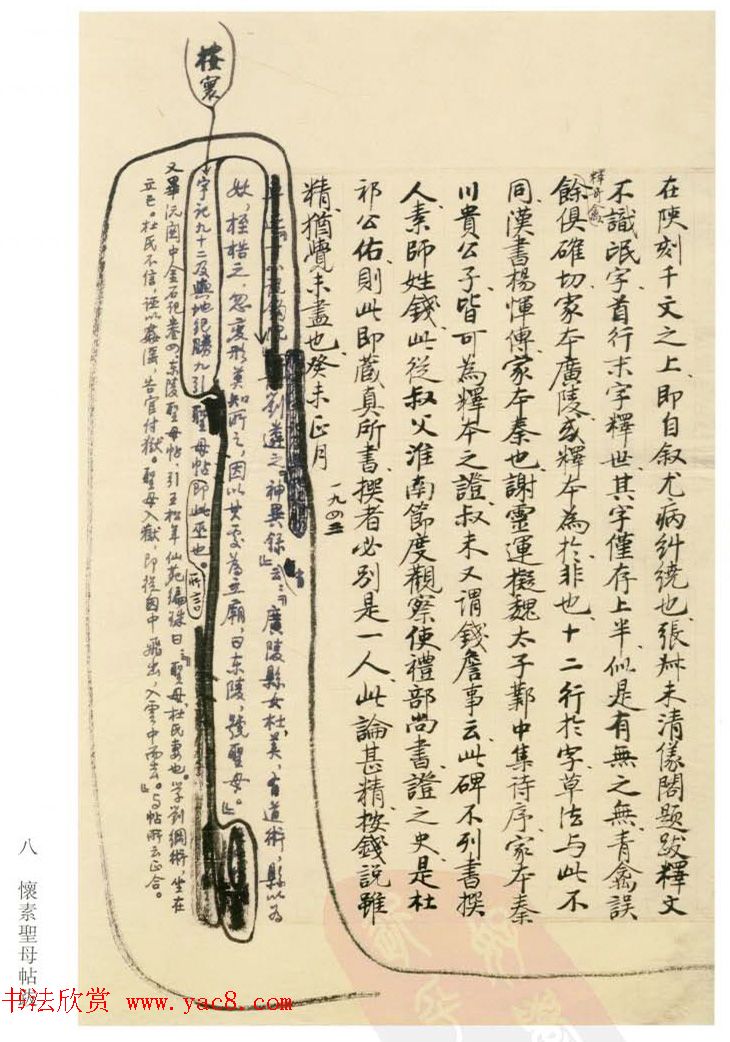 在陝刻千文之上即自叙尤病糾繞也張叔未清儀閣題跋釋文
不識氓字首行末字釋世其字僅存上半似是有無之無青禽誤
釋奇禽
餘俱確切家本廣陵或釋本為於非也十二行於字草法与此不
同漢書楊惲傳家本秦也謝靈運擬魏太子鄴中集待序家本秦
川貴公子皆可為釋本之證叔未又謂錢詹事云此碑不列書撰
人素師姓錢此從叔父淮南節度觀察使禮部尚書證之史是杜
祁公佑則此即蔵真所書撰者必別是一人此論甚精按錢説雖
精猶覺未盡也癸未正月
一九四三
劉遴之神異録云：廣陵縣女杜美，有道術，縣以為
妖，桎梏之，忽變形莫知所之，因以其處為立廟，曰东陵，號聖母。
按寰
宇記九十二及輿地紀勝九引聖母帖即此巫也。
所言
又畢沅関中金石記卷四东陵聖母帖，引王松年仙苑編珠曰：聖母，杜氏妻也。学劉綱術，坐在
立亡。杜氏不信，诬以姦淫，告官付獄。聖母入獄，即從囱中飛出，入雲中而去。与帖所云正合。
八 懷素聖母帖跋
书法欣赏 www.yac8.com